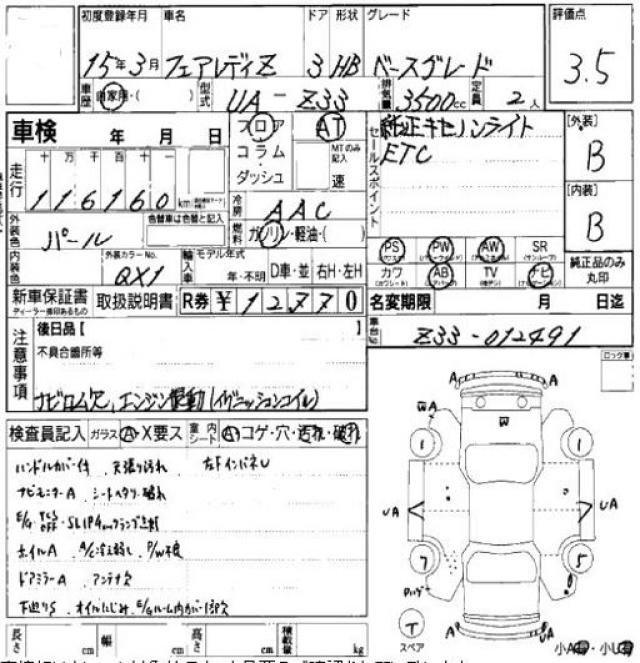 初度登録年月 車名 ドア 形状 グレード 評価点
15年3月 フェアレディZ 3 HB ベースグレード 3.5
車歴 自家用・( ) 型式 UA-Z33 排気量 3500cc 定員 2人
車検 年 月 日 フロア AT セールスポイント 純正キセノンライト [外装]
コラム MTのみ記入 ETC B
走行 十 万 千 百 十 一 ダッシュ 速
116160 km 冷房 AAC [内装]
外装色 パール 色替車は色替と記入 燃料 ガソリン・軽油・( ) B
PS PW AW SR
内装色 外装カラーNo. QX1 輸入車 モデル年式 年・不明 D車・並 右H・左H カワ AB TV ナビ 純正品のみ丸印
新車保証書 取扱説明書 R券 ¥12770 名変期限 月 日迄
ディーラー捺印あるもの
注意事項 後日品【 】 車台No. Z33-012491
不具合箇所等
ナビロム欠、エンジン振動(イグニッションコイル)
検査員記入 ガラス A・X要ス 室内シート A・コゲ・穴・汚れ・破れ
ハンドルカバー付 天張り汚れ 左FインパネU
ナビモニターA シートヘタリ・破れ
E/G・TCS OFF・SLIP 4wdランプ点灯
ホイルA A/C冷え弱し P/W不良
ドアミラーA アンテナ欠
下廻りS オイルにじみ E/Gルーム内カバー1部欠
長さ cm 幅 cm 高さ cm 積載量 kg
A A
W A W
1 1
UA UA
7 5
T スペア
A A
小A・小U